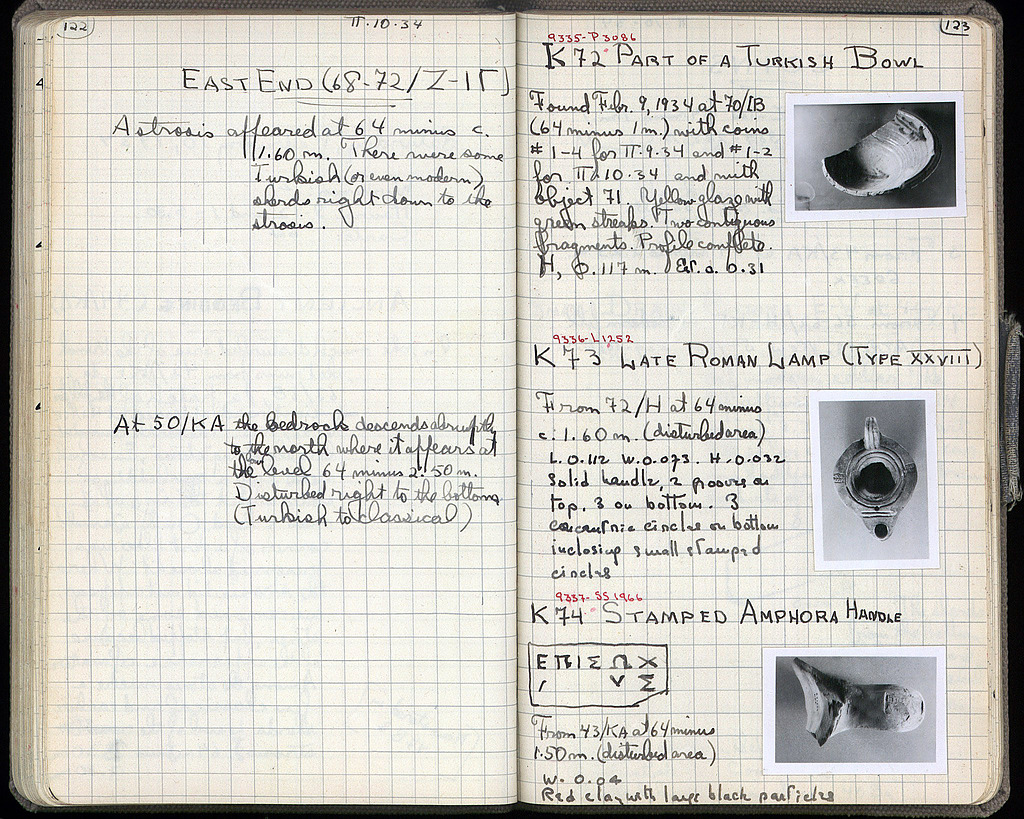 122
II.10.34
EAST END (68-72/Z-IΓ)
A strosis appeared at 64 minus c.
1.60 m. There were some
Turkish (or even modern)
sherds right down to the
strosis.
At 50/KA the bedrock descends abruptly
to the north where it appears at
the low level 64 minus 2.50 m.
Disturbed right to the bottom
(Turkish to classical)
4
123
9335-P3086
K 72 PART OF A TURKISH BOWL
Found Febr. 9, 1934 at 70/IB
(64 minus 1 m.) with coins
#1-4 for II.9.34 and #1-2
for II.10.34 and with
object 71. Yellow glaze with
green streaks. Two contiguous
fragments. Profile complete.
H, 0.117 m. 0.31
9336-L1252
K 73 LATE ROMAN LAMP (TYPE XXVIII)
From 72/H at 64 minus
c. 1.60 m. (disturbed area)
L. 0.112 W. 0.073. H. 0.032
Solid handle, 2 grooves on
top, 3 on bottom. 3
concentric circles on bottom
inclosing small stamped
circles
9337-SS1966
K 74 STAMPED AMPHORA HANDLE
ΕΠΙΣΩΧ
Σ
From 43/KA at 64 minus
1.50 m. (disturbed area)
W. 0.04
Red clay with large black particles